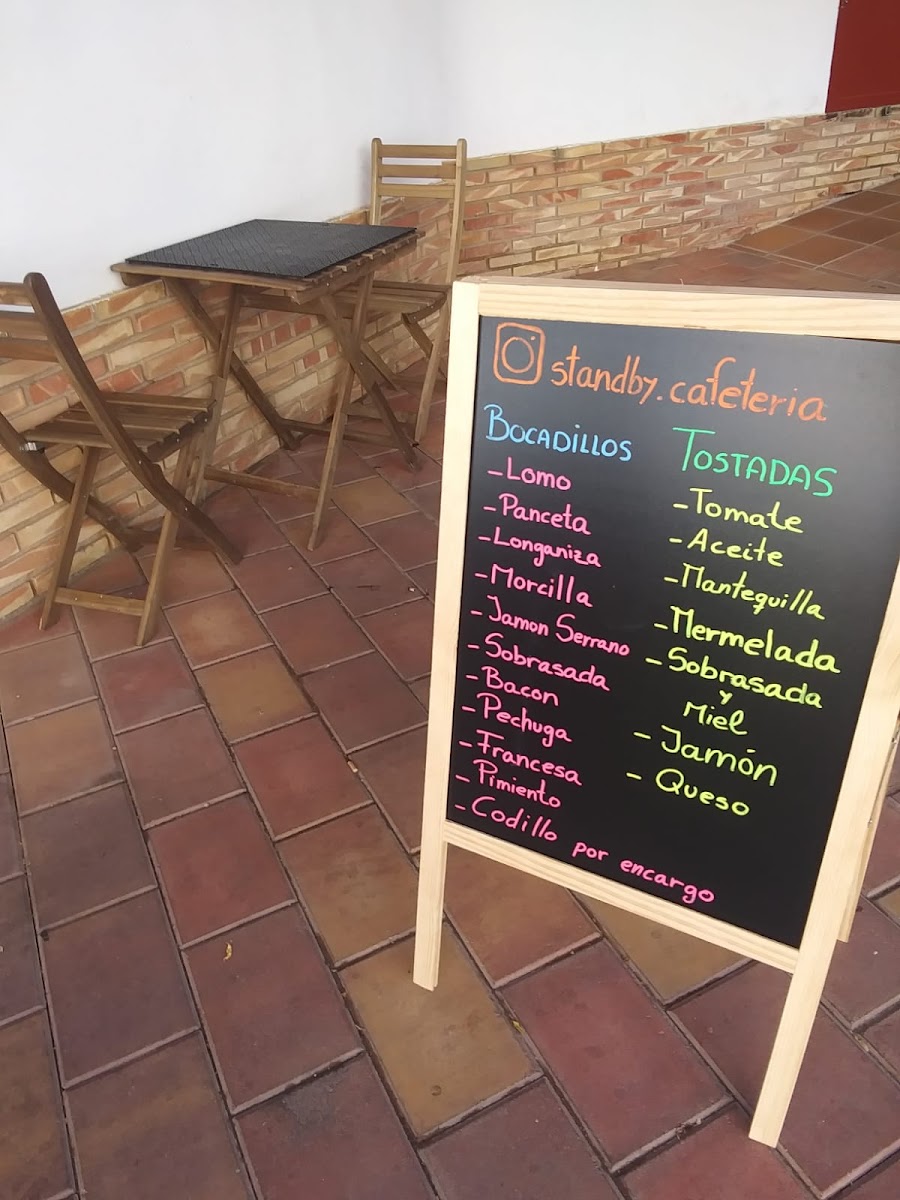 standby.cafeteria
BOCADILLOS
- Lomo
- Panceta
- Longaniza
- Morcilla
- Jamon Serrano
- Sobrasada
- Bacon
- Pechuga
- Francesa
- Pimiento
- Codillo por encargo
TOSTADAS
- Tomate
- Aceite
- Mantequilla
- Mermelada
- Sobrasada
y
Miel
- Jamón
- Queso